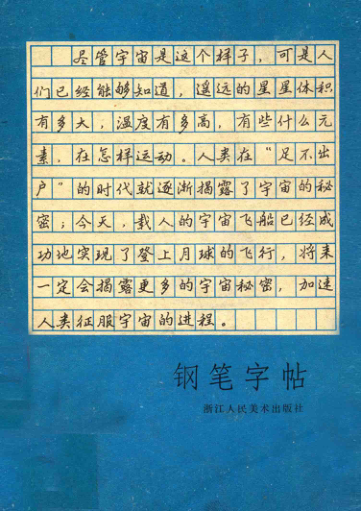 尽管宇宙是这个样子，可是人
们已经能够知道，遥远的星星体积
有多大，温度有多高，有些什么元
素。在怎样运动。人类在“足不出
户”的时代就逐渐揭露了宇宙的秘
密；今天，载人的宇宙飞船已经成
功地实现了登上月球的飞行，将来
一定会揭露更多的宇宙秘密，加速
人类征服宇宙的进程。
钢笔字帖
浙江人民美术出版社